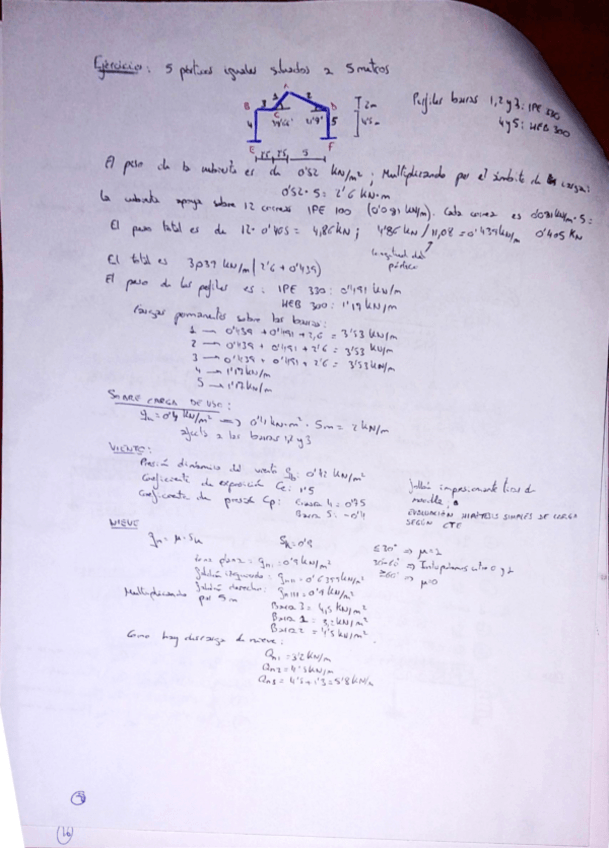 Ejercicio: 5 pórticos iguales situados a 5 metros
A
3 2
B 3 C D
4 5
E F
2m
4'5m
2'5 2'5 5
Perfiles barras 1,2 y 3: IPE 330
4 y 5: HEB 300
El peso de la cubierta es de 0'52 KN/m²; Multiplicando por el ámbito de las cargas:
0'52 · 5 = 2'6 KN·m
La cubierta apoya sobre 12 correas IPE 100 (0'081 KN/m). Cada correa es 0'081 KN/m · 5 =
0'405 KN
El peso total es de 12 · 0'405 = 4,86 KN; 4'86 KN / 11,08 = 0'439 KN/m
longitud del pórtico
El total es 3,039 KN/m (2'6 + 0'439)
El peso de los perfiles es: IPE 330: 0'491 KN/m
HEB 300: 1'19 KN/m
Cargas permanentes sobre las barras:
1 → 0'439 + 0'491 + 2,6 = 3'53 KN/m
2 → 0'439 + 0'491 + 2'6 = 3'53 KN/m
3 → 0'439 + 0'491 + 2'6 = 3'53 KN/m
4 → 1'19 KN/m
5 → 1'19 KN/m
SOBRE CARGA DE USO:
0'4 KN/m² · 5m = 2 KN/m
afecta a las barras 1,2 y 3
VIENTO:
Presión dinámica del viento qb: 0'42 KN/m²
Coeficiente de exposición Ce: 1'5
Coeficiente de presión Cp: Barra 4: 0'75
Barra 5: -0'4
faltan
EVALUACIÓN HIPÓTESIS SIMPLES DE CARGA
SEGÚN CTE
NIEVE
qn = μ · Sk Sk = 0'9
≤30° ⇒ μ=1
30÷60° ⇒ Interpolamos entre 0 y 1
≥60° ⇒ μ=0
zona plana: qn1 = 0'9 KN/m²
faldón izquierdo: = 0'6399 KN/m²
faldón derecho: = 0'9 KN/m²
Multiplicando por 5m
Barra 3 = 4,5 KN/m²
Barra 1 = 3,2 KN/m²
Barra 2 = 4'5 KN/m²
Como hay descarga de nieve:
Qn1 = 3'2 KN/m
Qn2 = 4'5 KN/m
Qn3 = 4'5 + 1'3 = 5'8 KN/m
16